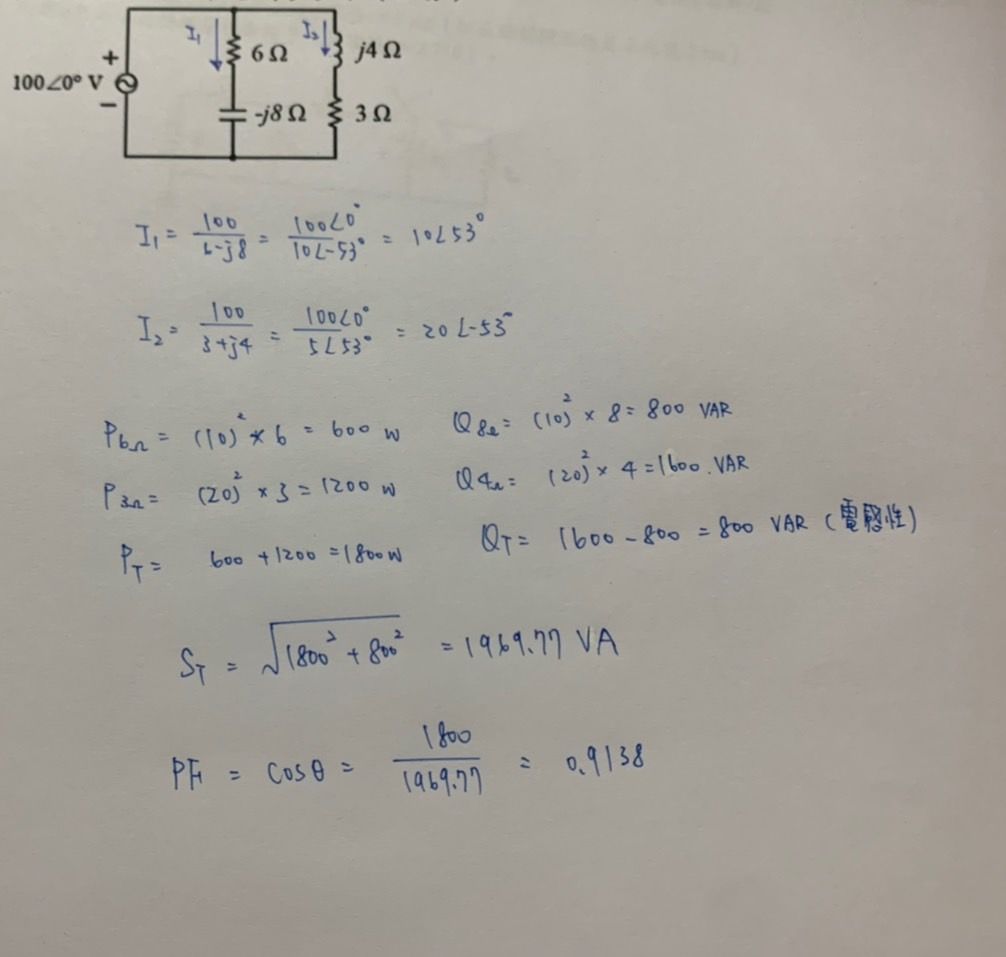 I₁ I₂
+ 6Ω j4Ω
100∠0° V
− -j8Ω 3Ω
I₁ = 100/(6-j8) = 100∠0°/10∠-53° = 10∠53°
I₂ = 100/(3+j4) = 100∠0°/5∠53° = 20∠-53°
P6Ω = (10)² × 6 = 600 W Q8Ω = (10)² × 8 = 800 VAR
P3Ω = (20)² × 3 = 1200 W Q4Ω = (20)² × 4 = 1600. VAR
PT = 600 + 1200 = 1800 W QT = 1600 - 800 = 800 VAR (電感性)
ST = √(1800² + 800²) = 1969.77 VA
PF = cosθ = 1800/1969.77 = 0.9138